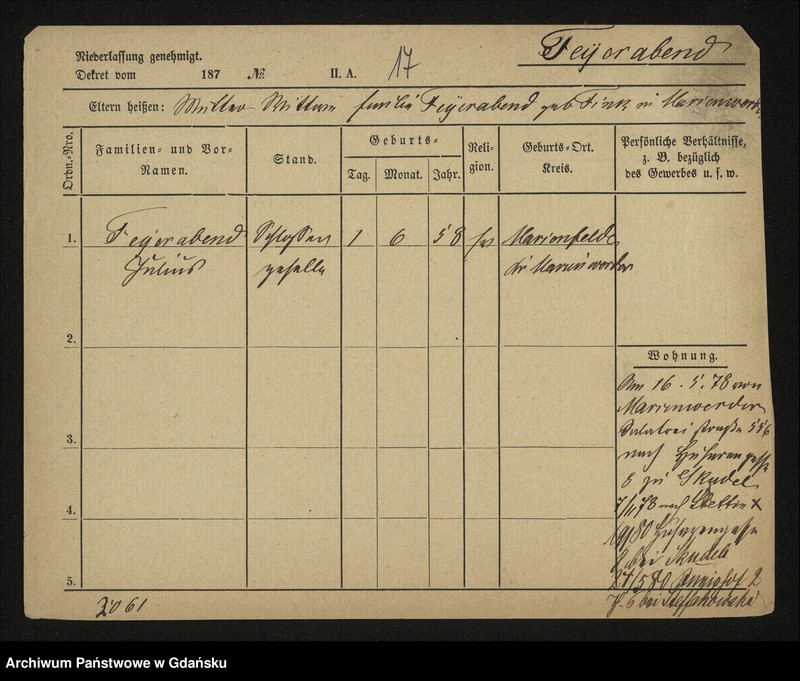 Niederlassung genehmigt.
Dekret vom 187 № II. A. 17
Feyerabend
Eltern heißen: Mutter Wittwe Feyerabend geb Fink in Marienwerder
Ordn.-Nro.
Familien- und Vor-Namen.
Stand.
Geburts-
Tag. Monat. Jahr.
Reli-gion.
Geburts-Ort. Kreis.
Persönliche Verhältnisse, z. B. bezüglich des Gewerbes u. s. w.
1. Feyerabend Schlosser 1 6 58 ev Marienfelde
Julius geselle Kr Marienwerder
2.
Wohnung.
Am 16. 5. 78 von
Marienwerder
straße 556
nach Husarengasse
8 zu Skudel
3.
7/11 78 nach Stettin
80 Husarengasse
8 bei Skudel
4.
27/5 80 2
H. 6 bei
5.
2061
Archiwum Państwowe w Gdańsku